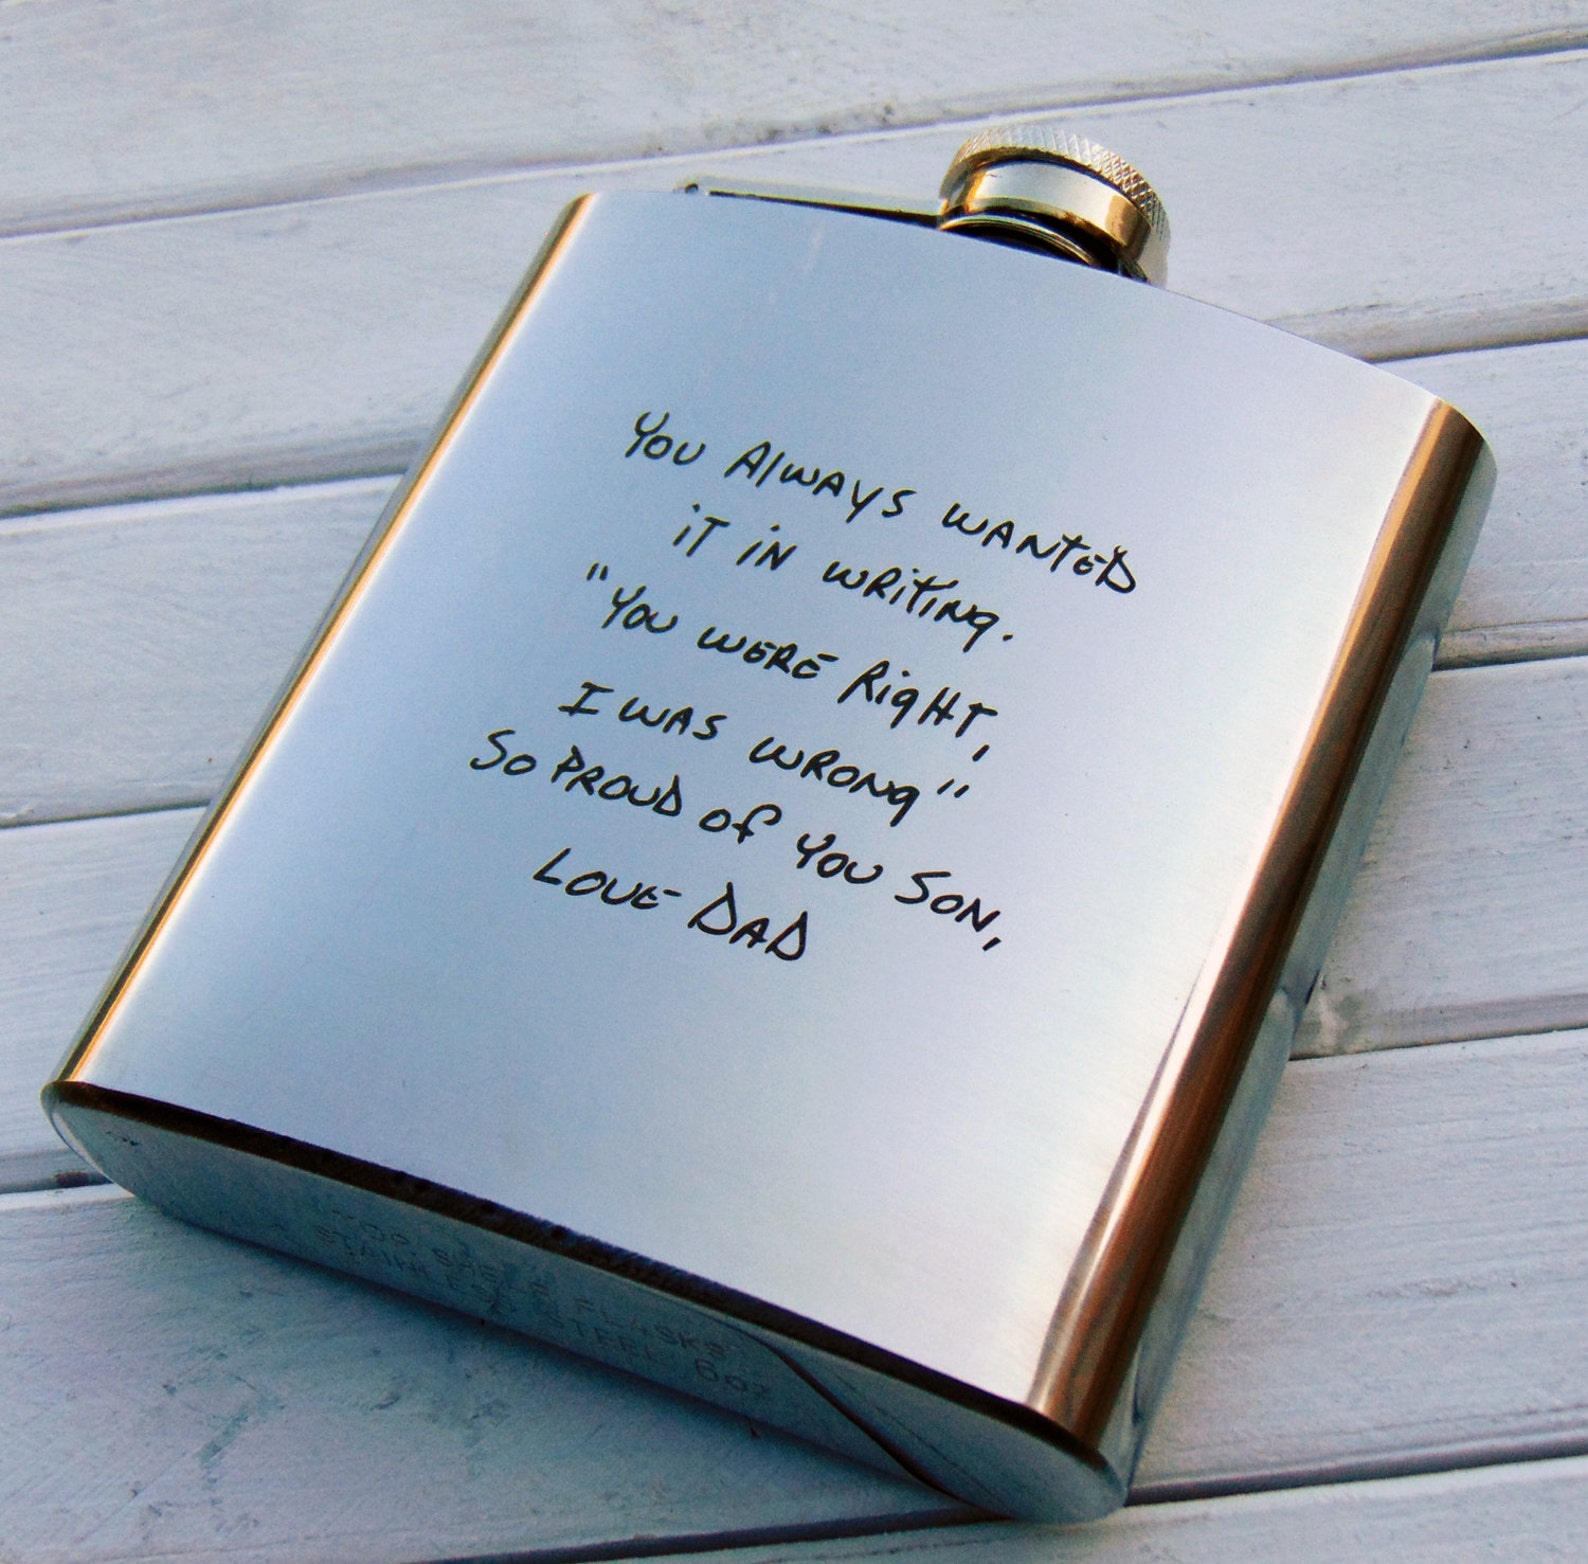 You Always wanted
it in writing.
"You were Right,
I was wrong"
So Proud of You Son,
Love Dad
STAINLESS STEEL 6oz